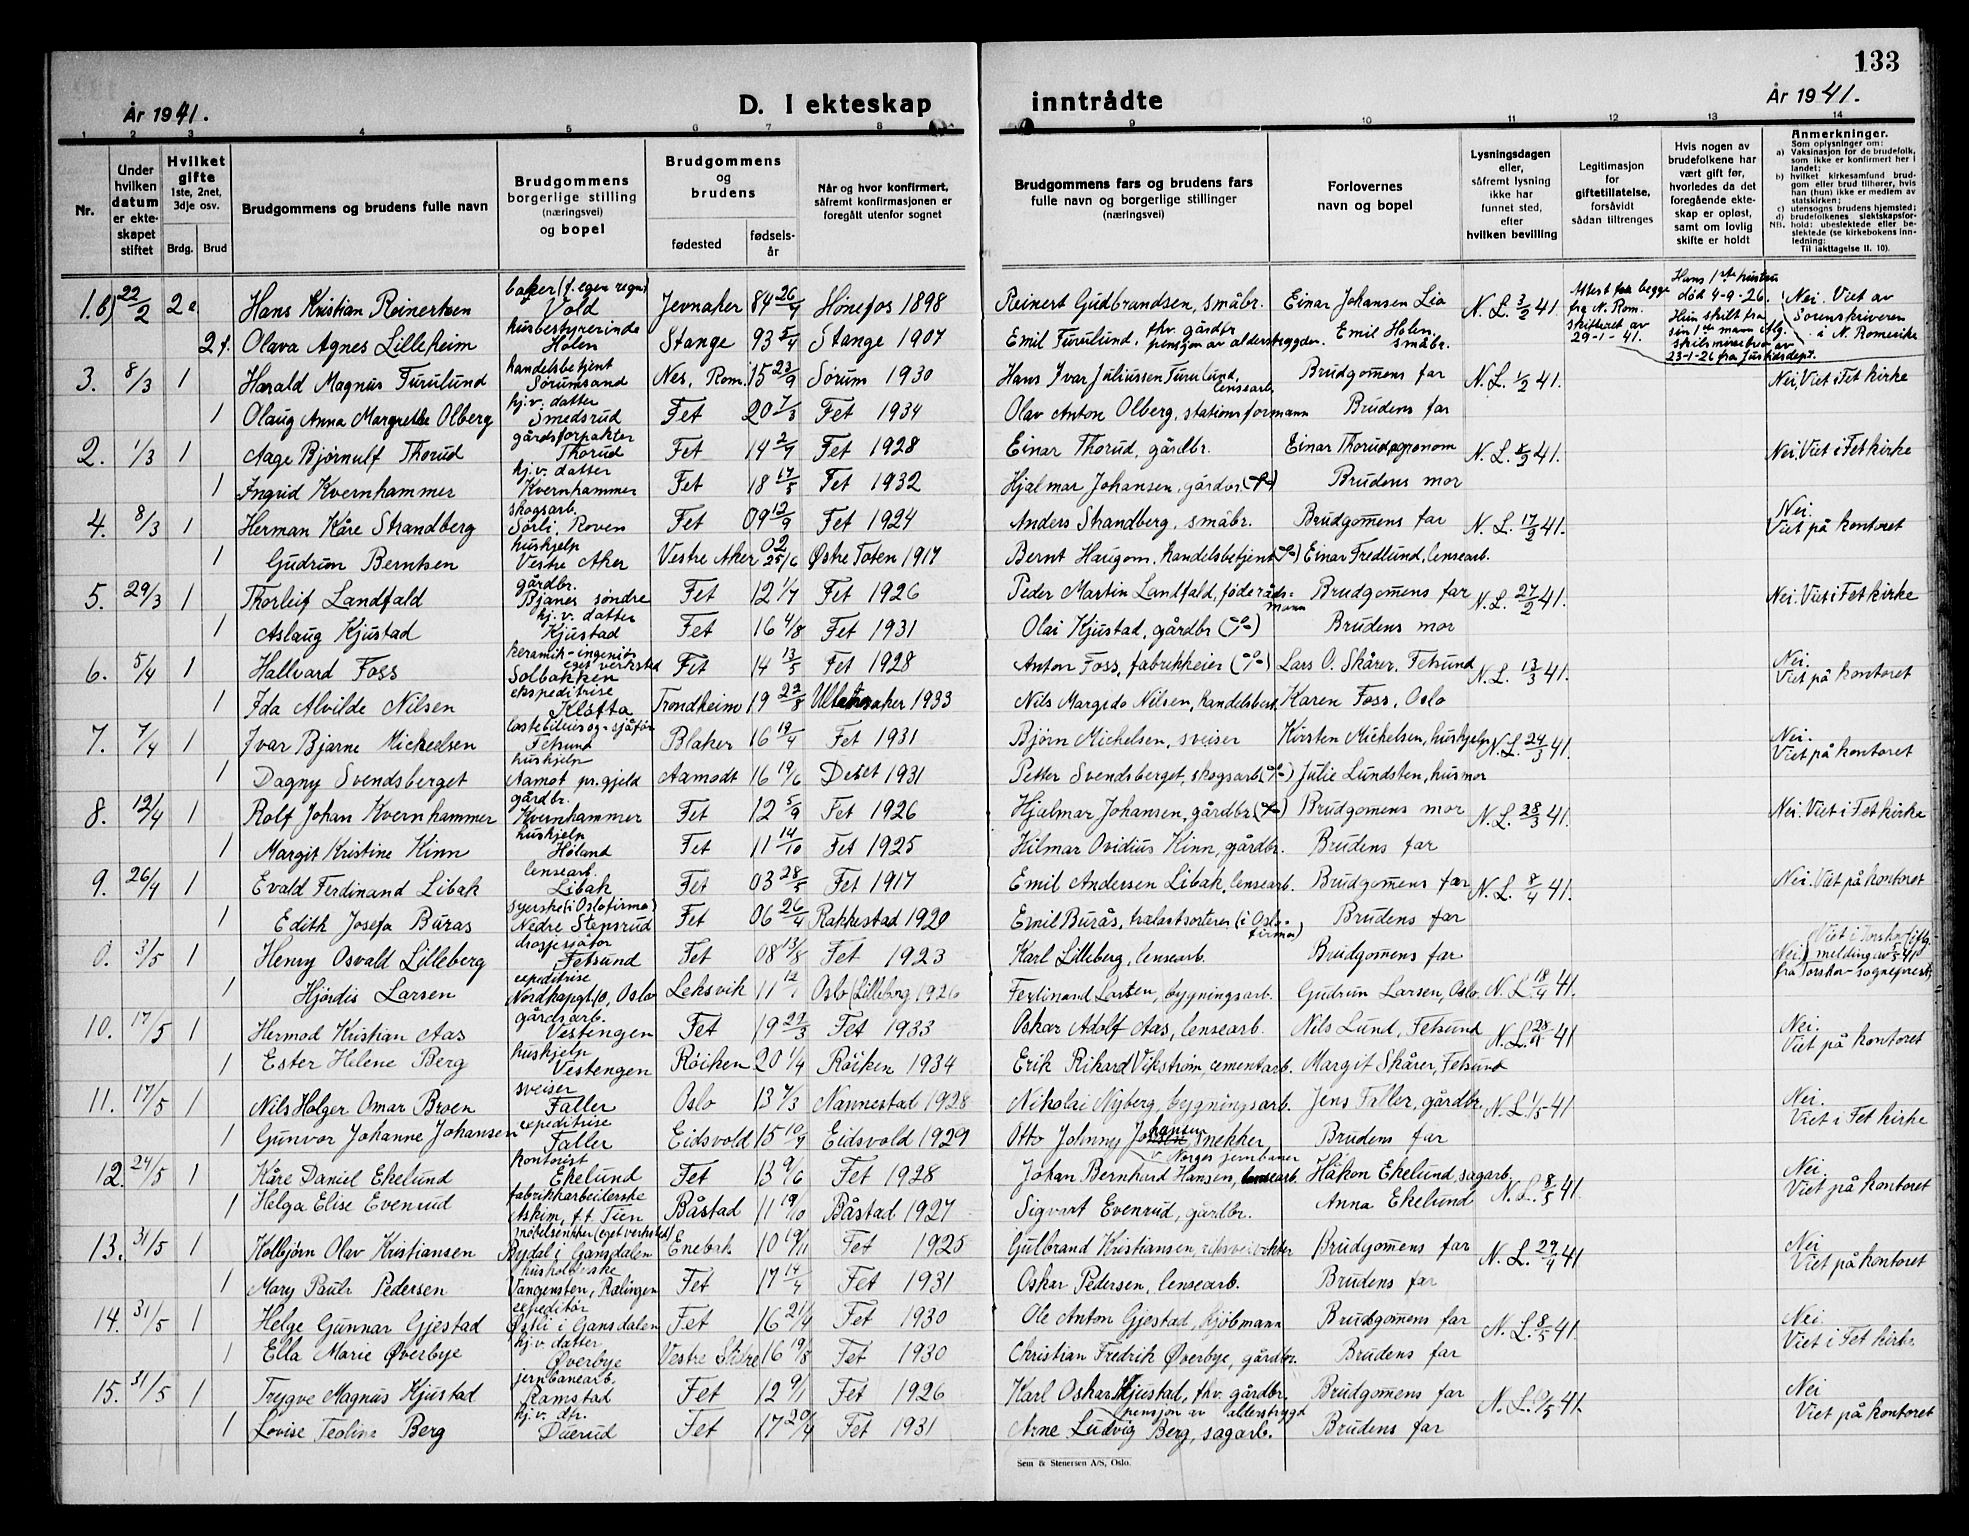 133
År 1941.
D. I ekteskap inntrådte
År 1941.
1 2 3 4 5 6 7 8 9 10 11 12 13 14
Nr.
Under hvilken datum er ekteskapet stiftet
Hvilket gifte 1ste, 2net, 3dje osv.
Brdg. Brud
Brudgommens og brudens fulle navn
Brudgommens borgerlige stilling (næringsvei) og bopel
Brudgommens og brudens
fødested fødselsår
Når og hvor konfirmert, såfremt konfirmasjonen er foregått utenfor sognet
Brudgommens fars og brudens fars fulle navn og borgerlige stillinger (næringsvei)
Forlovernes navn og bopel
Lysningsdagen eller, såfremt lysning ikke har funnet sted, efter hvilken bevilling
Legitimasjon for giftetillatelse, forsåvidt sådan tiltrenges
Hvis nogen av brudefolkene har vært gift før, hvorledes da det foregående ekteskap er opløst, samt om lovlig skifte er holdt
Anmerkninger.
Som oplysninger om:
a) Vaksinasjon for de brudefolk, som ikke er konfirmert her i landet;
b) hvilket kirkesamfund brudgom eller brud tilhører, hvis han (hun) ikke er medlem av statskirken;
c) utensogns brudens hjemsted;
d) brudefolkenes slektskapsforhold: ubeslektede eller beslektede (se kirkebokens innledning:
NB. Til iakttagelse II. 10).
1.b) 22/2 2e Hans Kristian Reinertsen baker (f. egen regn) Vold Jevnaker 84 26/4 Hønefos 1898 Reinert Gudbrandsen, småbr. Einar Johansen Lio N. L. 3/2 41. Attest fra begge fra N. Rom. skifterett av 29-1-41. Hans 1ste hustru død 4-9-26. Nei. Viet av Sorenskriveren i N. Romerike
2f. Olava Agnes Lilleheim husbestyrerinde Holen Stange 93 5/4 Stange 1907 Emil Furulund, fhv. gårdbr pensjon av alderstrygden Emil Holen, småbr. Hun skilt fra sin 1ste mann iflg. skilsmissebrev av 23-1-26 fra Justisdept.
3. 8/3 1 Harald Magnus Furulund handelsbetjent Sørumsand Nes, Rom. 15 23/9 Sørum 1930 Hans Ivar Juliussen Furulund, lensearb. Brudgomens far N. L. 1/2 41. Nei, Viet i Fet kirke
1 Olaug Anna Margrethe Olberg hj.v. datter Smedsrud Fet 20 7/3 Fet 1934 Olav Anton Olberg, stationsformann Brudens far
2. 1/3 1 Aage Bjørnulf Thorud gårdsforpakter Thorud Fet 14 2/4 Fet 1928 Einar Thorud, gårdbr. Einar Thorud agronom N. L. 41. Nei. Viet i Fet kirke
1 Ingrid Kvernhammer hj.v. datter Kvernhammer Fet 18 17/5 Fet 1932 Hjalmar Johansen, gårdbr Brudens mor
4. 8/3 1 Herman Kåre Strandberg skogsarb. Sørli, Roven Fet 09 12/9 Fet 1924 Anders Strandberg, småbr. Brudgomens far N. L. 17/2 41. Nei. Viet på kontoret
1 Gudrun Berntsen hushjelp Vestre Aker Vestre Aker 02 25/6 Østre Toten 1917 Bernt Haugom, handelsbetjent Einar Fredlund, lensearb.
5. 29/3 1 Thorleif Landfald gårdbr. Bjanes søndre Fet 12 1/7 Fet 1926 Peder Martin Landfald, føderådsmann Brudgomens far N. L. 27/2 41. Nei. Viet i Fet kirke
1 Aslaug Kjustad hj.v. datter Kjustad Fet 16 4/8 Fet 1931 Olai Kjustad, gårdbr Brudens mor
6. 5/4 1 Hallvard Foss keramik-ingeniør eget verksted Solbakken Fet 14 13/5 Fet 1928 Anton Foss, fabrikkeier Lars O. Skårer, Fetsund N. L. 13/3 41. Nei. Viet på kontoret
1 Ida Alvilde Nilsen ekspeditrise Kløfta Trondheim 19 22/8 Ullensaker 1933 Nils Margido Nilsen, handelsbest. Karen Foss, Oslo
7. 7/4 1 Ivar Bjarne Michelsen lastebileier og -sjåfør Fetsund Blaker 16 19/4 Fet 1931 Bjørn Michelsen, sveiser Kirsten Michelsen, hushjelp N. L. 24/3 41. Nei. Viet på kontoret
1 Dagny Svendsberget hushjelp Aamot pr.gjeld Aamodt 16 19/6 Deset 1931 Petter Svendsberget, skogsarb Julie Lundsten, husmor
8. 12/4 1 Rolf Johan Kvernhammer gårdbr. Kvernhammer Fet 12 5/9 Fet 1926 Hjalmar Johansen, gårdbr Brudgomens mor N. L. 28/3 41. Nei. Viet i Fet kirke
1 Margit Kristine Kinn hushjelp Høland Fet 11 14/10 Fet 1925 Hilmar Ovidius Kinn, gårdbr. Brudens far
9. 26/4 1 Evald Ferdinand Libak lensearb. Libak Fet 03 28/5 Fet 1917 Emil Andersen Libak, lensearb. Brudgomens far N. L. 8/4 41. Nei. Viet på kontoret
1 Edith Josefa Buras syerske (i Oslofirma) Nedre Stensrud Fet 06 26/4 Rakkestad 1920 Emil Burås, trælastsorterer (i Oslofirma) Brudens far
0. 3/5 1 Henry Osvald Lilleberg drosjesjåfør Fetsund Fet 08 13/8 Fet 1923 Karl Lilleberg, lensearb. Brudgomens far Nei, Viet i Torshov iflg. melding av 5/5-41 fra Torshov sogneprest
1 Hjørdis Larsen expeditrise Nordkapgt. 10, Oslo Leksvik 11 Oslo (Lilleborg 1926 Ferdinand Larsen, bygningsarb. Gudrun Larsen, Oslo. N. L. 18/4 41.
10. 17/5 1 Hermod Kristian Aas gårdsarb. Vestengen Fet 19 27/3 Fet 1933 Oskar Adolf Aas, lensearb. Nils Lund, Fetsund N. L. 28/4 41 Nei. Viet på kontoret
1 Ester Helene Berg hushjelp Vestengen Røiken 20 1/4 Røiken 1934 Erik Rikard Vikstrøm, cementarb. Margit Skårer, Fetsund
11. 17/5 1 Nils Holger Omar Broen sveiser Faller Oslo 13 7/3 Nannestad 1928 Nikolai Nyberg, bygningsarb. Jens Faller, gårdbr. N. L. 1/5 41 Nei. Viet i Fet kirke
1 Gunvor Johanne Johansen expeditrise Faller Eidsvold 15 10/7 Eidsvold 1929 Otto Johnny Johansen snekker v. Norges jernbaner Brudens far
12. 24/5 1 Kåre Daniel Ekelund kontorist Ekelund Fet 13 9/6 Fet 1928 Johan Bernhard Hansen, lensearb. Håkon Ekelund, sagarb. N. L. 8/5 41. Nei. Viet på kontoret
1 Helga Elise Evenrud fabrikkarbeiderske Askim, f.t. Tien Båstad 11 19/10 Båstad 1927 Sigvart Evenrud, gårdbr. Anna Ekelund
13. 31/5 1 Kolbjørn Olav Kristiansen møbelsnekker (eget verksted) Bydal i Gansdalen Enebak 10 19/11 Fet 1925 Gulbrand Kristiansen, riksveivokter Brudgomens far N. L. 29/4 41 Nei Viet på kontoret
1 Mary Paula Pedersen husholderske Vangensten, Rælingen Fet 17 14/4 Fet 1931 Oskar Pedersen, lensearb. Brudens far
14. 31/5 1 Helge Gunnar Gjestad expeditør Østli i Gansdalen Fet 16 21/4 Fet 1930 Ole Anton Gjestad, kjøbmann Brudgomens far N. L. 8/5 41. Nei. Viet i Fet kirke
1 Ella Marie Øverbye hj.v. datter Øverbye Vestre Slidre 16 19/8 Fet 1930 Christian Fredrik Øverbye, gårdbr. Brudens far
15. 31/5 1 Trygve Magnus Kjustad jernbanearb. Ramstad Fet 12 9/1 Fet 1926 Karl Oskar Kjustad, fhv. gårdbr. pensjon av alderstrygd Brudgomens far N. L. 9/5 41. Nei Viet på kontoret
1 Lovise Teoline Berg hj.v. dtr. Duerud Fet 17 20/4 Fet 1931 Arne Ludvig Berg, sagarb. Brudens far
Sem & Stenersen A/S, Oslo.